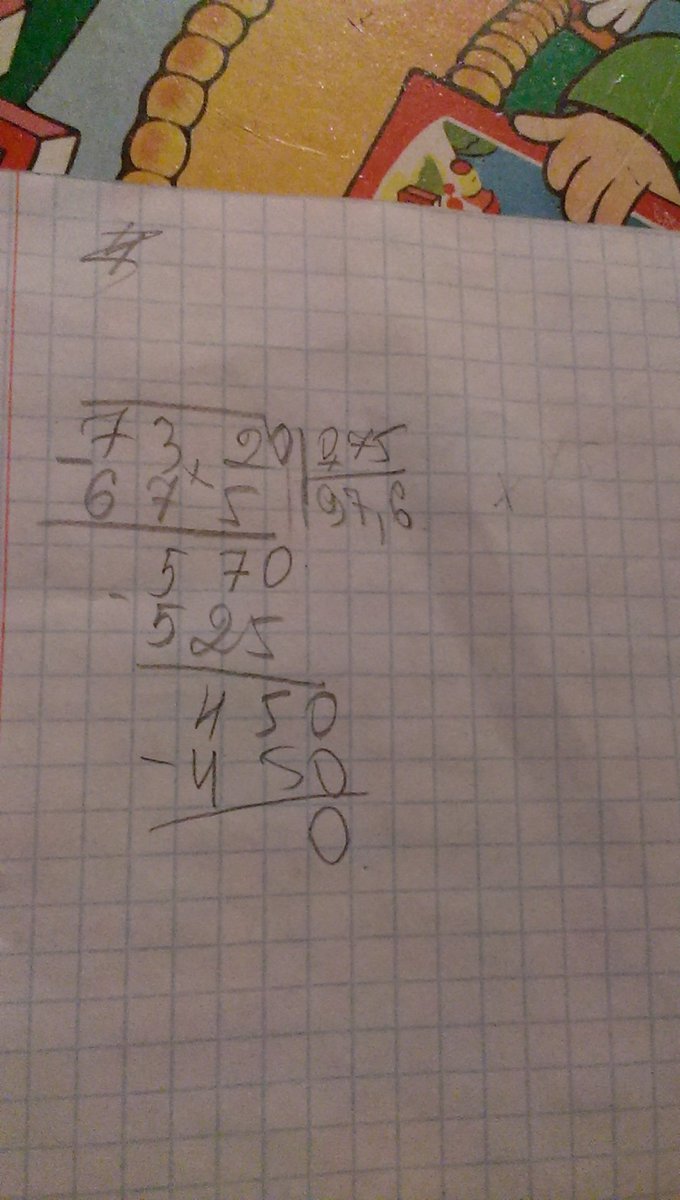 73,20 0,75
- 675 97,6
570
- 525
450
- 450
0